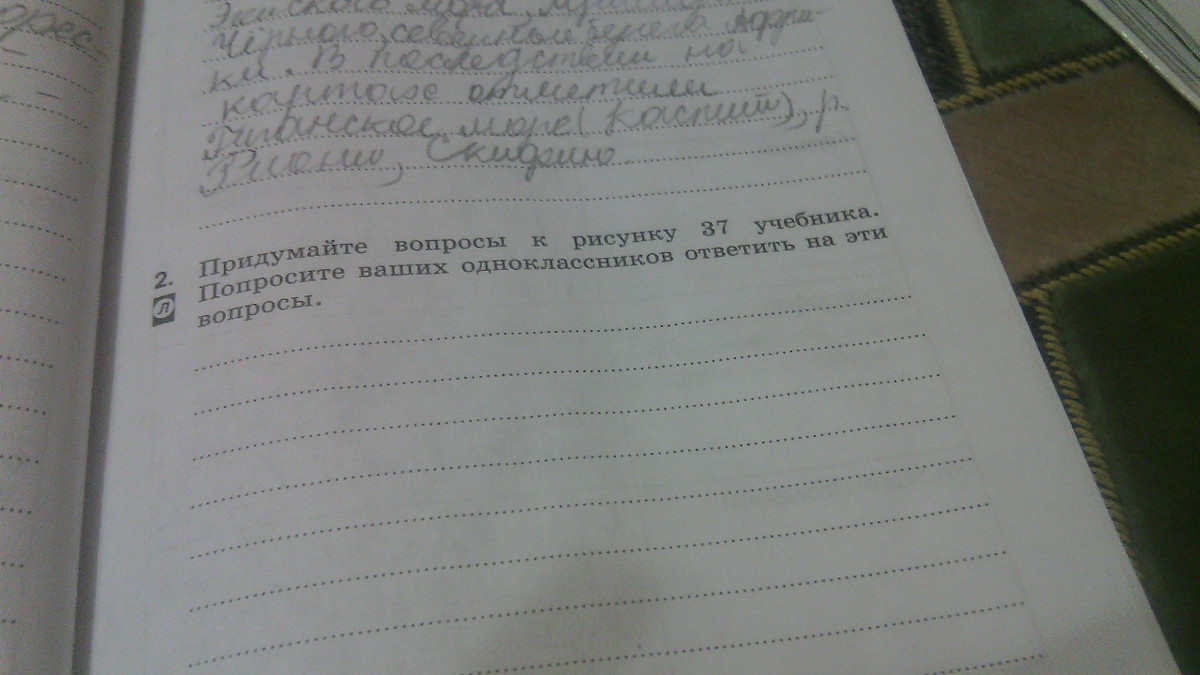 Эгейского моря,
Черного, северный берега Афри-
ки. В последствии на
картах отметили
море (Каспий), р.
Риони, Скифию
2. Придумайте вопросы к рисунку 37 учебника.
Л Попросите ваших одноклассников ответить на эти
вопросы.